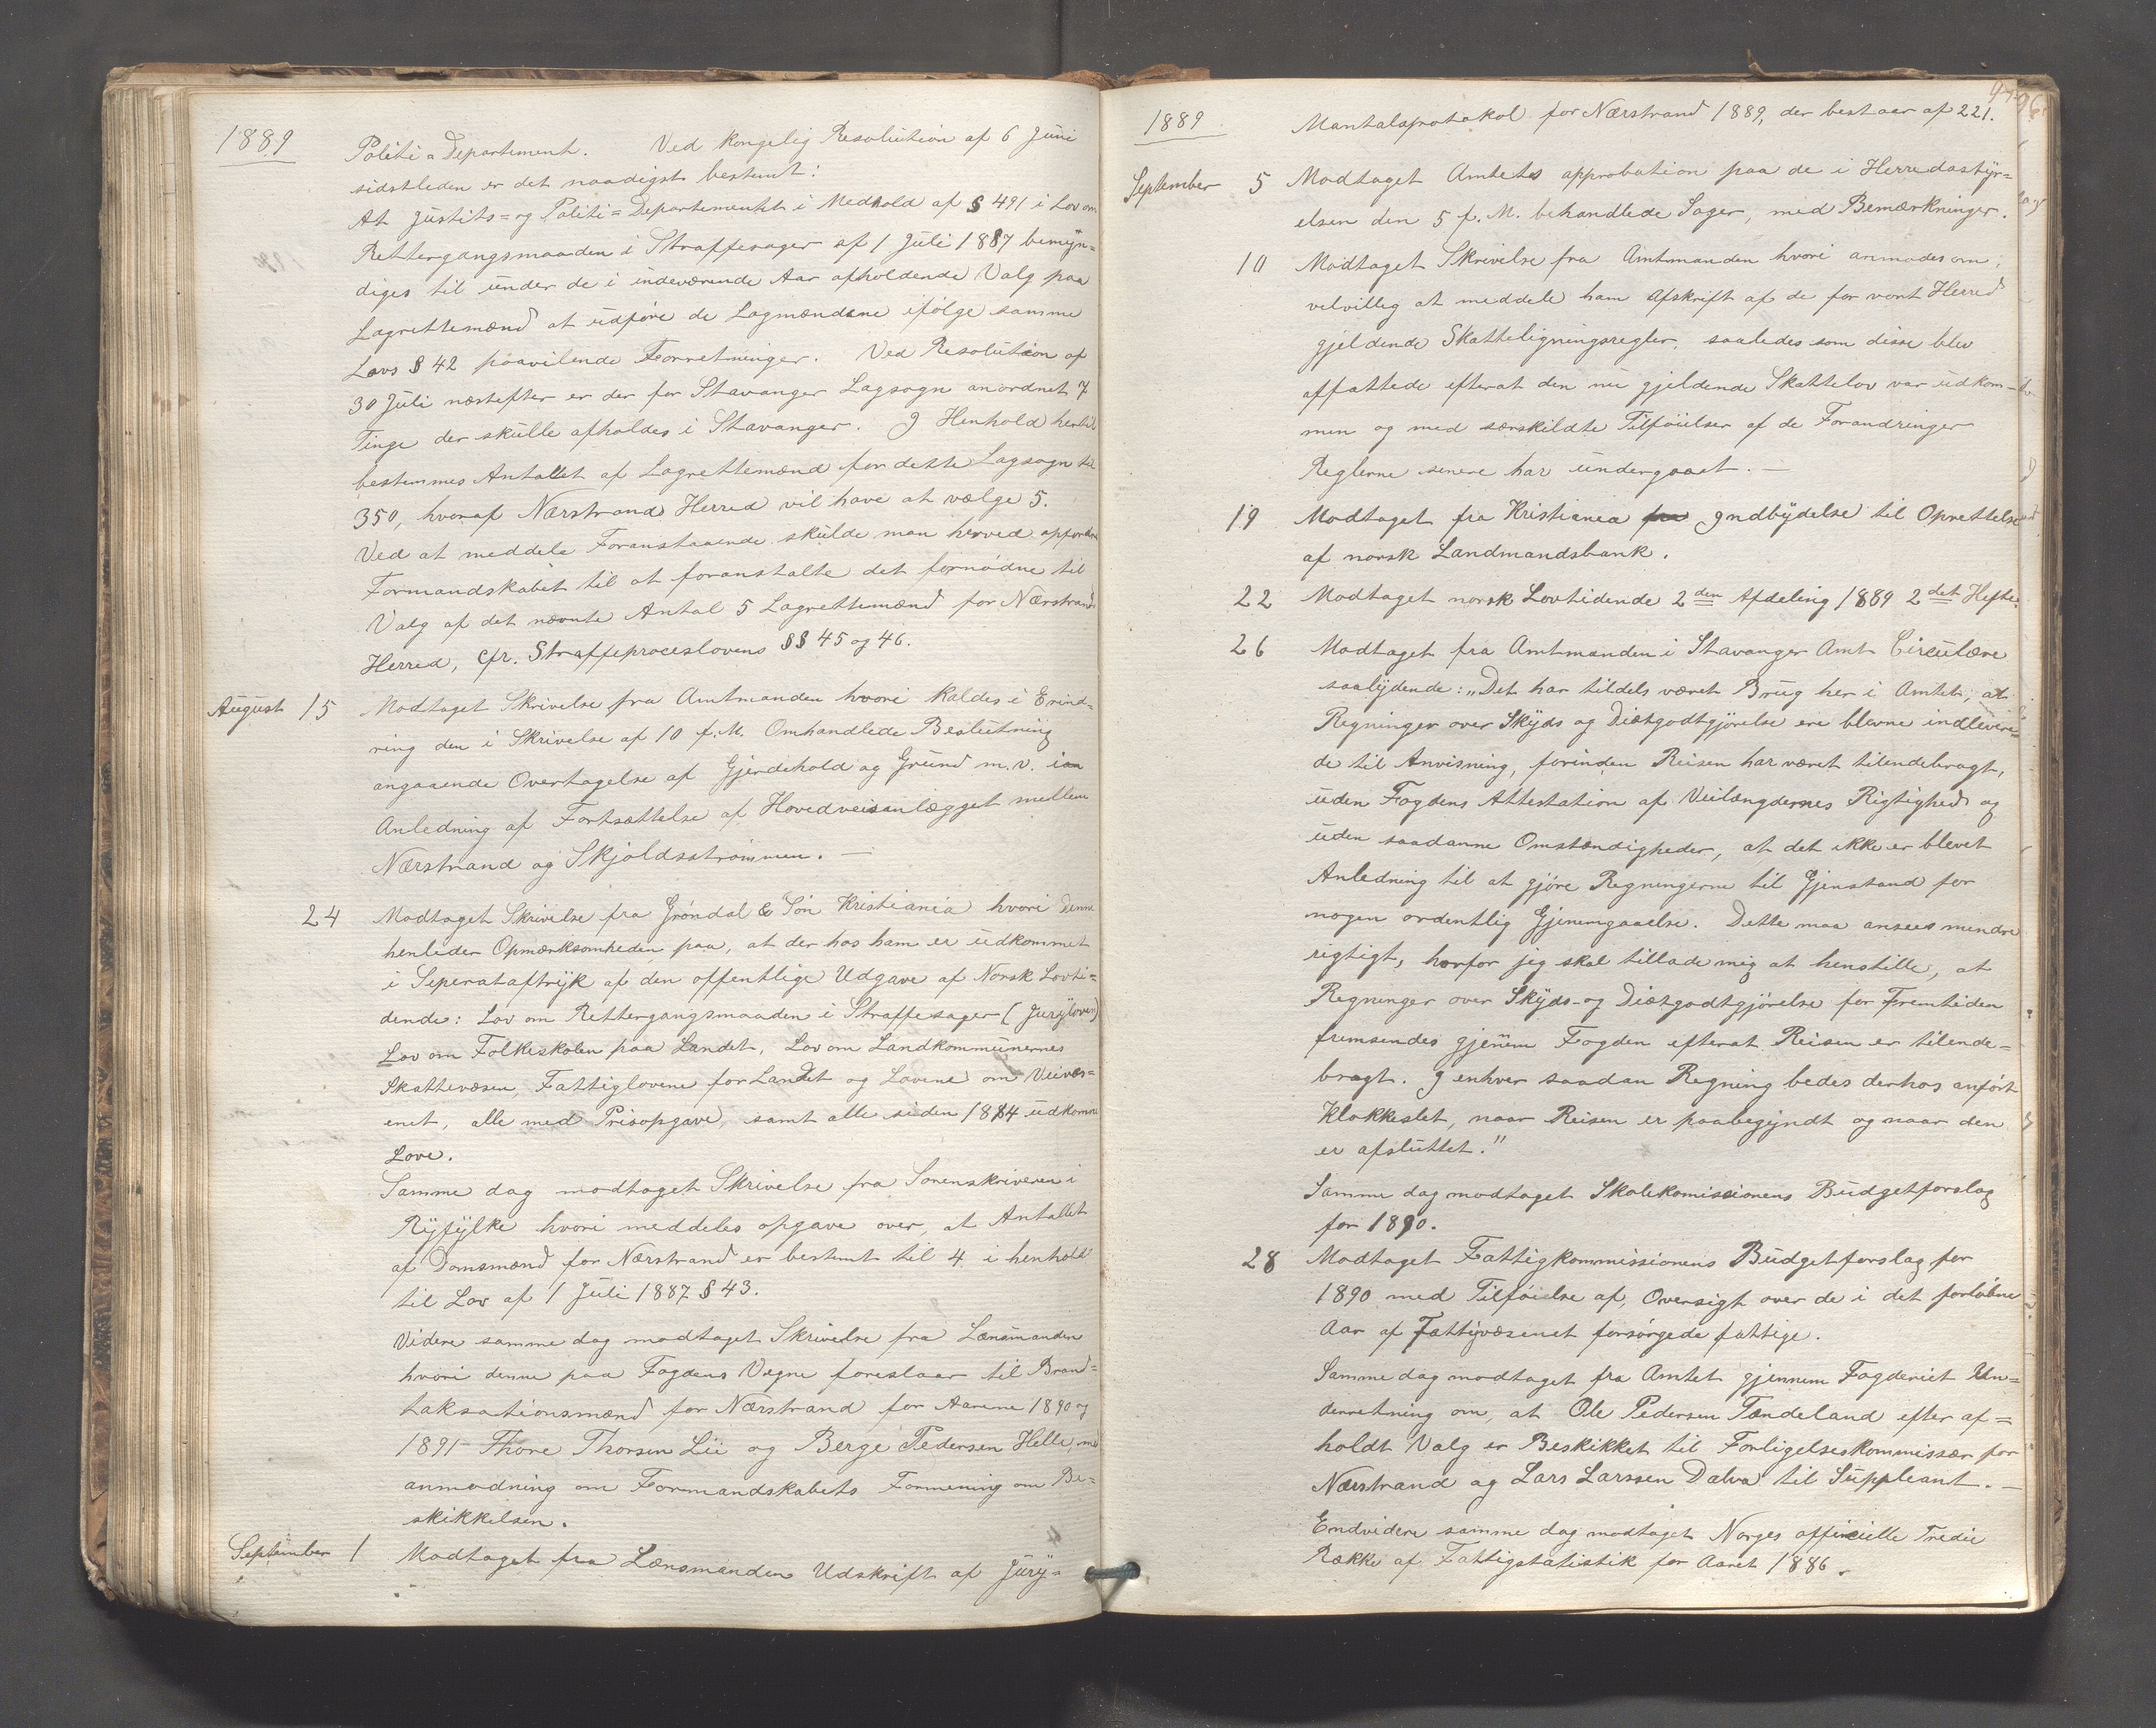 1889
Politi=Departement. Ved kongelig Resolution af 6 Juni
sidstleden er det naadigst bestemt:
At Justits= og Politi=Departementet i Medhold af § 491 i Lov om
Rettergangsmaaden i Straffesager af 1 Juli 1887 bemyn=
diges til under de i indeværende Aar afholdende Valg paa
Lagrettemænd at udføre de Lagmændene ifølge samme
Lovs § 42 paavilende Forretninger. Ved Resolution af
30 Juli næstefter er der for Stavanger Lagsogn anordnet 7
Tinge der skulle afholdes i Stavanger. I Henhold hertil
bestemmes Antallet af Lagrettemænd for dette Lagsogn til
350, hvoraf Nærstrand Herred vil have at vælge 5.
Ved at meddele Foranstaaende skulde man herved opfordre
Formandskabet til at foranstalte det fornødne til
Valg af det nævnte Antal 5 Lagrettemænd for Nærstrand
Herred, cfr. Straffeproceslovens §§ 45 og 46.
August 15 Modtaget Skrivelse fra Amtmanden hvori kaldes i Erind=
ring den i Skrivelse af 10 f. M. Omhandlede Beslutning
angaaende Overtagelse af Gjerdehold og Grund m.v. i
Anledning af Fortsættelse af Hovedveisanlægget mellem
Nærstrand og Skjoldsstrømmen. —
24 Modtaget Skrivelse fra Grøndal & Søn Kristiania hvori denne
henleder Opmærksomheden paa, at der hos ham er udkommet
i Seperataftryk af den offentlige Udgave af Norsk Lovti=
dende: Lov om Rettergangsmaaden i Straffesager (Juryloven)
Lov om Folkeskolen paa Landet, Lov om Landkommunernes
Skattevæsen, Fattiglovene for Landet og Lovene om Veivæs=
enet, alle med Prisopgave, samt alle siden 1884 udkomne
Love.
Samme dag modtaget Skrivelse fra Sorenskriveren i
Ryfylke hvori meddeles opgave over, at Antallet
af Domsmænd for Nærstrand er bestemt til 4 i henhold
til Lov af 1 Juli 1887 § 43.
Videre samme dag modtaget Skrivelse fra Lænsmanden
hvori denne paa Fogdens Vegne foreslaar til Brand=
taksationsmænd for Nærstrand for Aarene 1890 og
1891 Thore Thorsen Lii og Berge Pedersen Helle, med
anmodning om Formandskabets Formening om Be=
skikkelsen.
September 1 Modtaget fra Lænsmanden Udskrift af Jury=
1889
Mantalsprotokol for Nærstrand 1889, der bestaar af 221.
96
September 5 Modtaget Amtets approbation paa de i Herredsstyr=
elsen den 5 f. M. behandlede Sager, med Bemærkninger.
10 Modtaget Skrivelse fra Amtmanden hvori anmodes om,
velvillig at meddele ham Afskrift af de for vort Herred
gjeldende Skatteligningsregler, saaledes som disse blev
affattede efterat den nu gjeldende Skattelov var udkom=
men og med særskildte Tilføielser af de Forandringer
Reglerne senere har undergaaet. —
19 Modtaget fra Kristiania fra Indbydelse til Oprettelse
af norsk Landmandsbank.
22 Modtaget norsk Lovtidende 2den Afdeling 1889 2det Hefte.
26 Modtaget fra Amtmanden i Stavanger Amt Circulære
saalydende: „Det har tildels været Brug her i Amtet, at
Regninger over Skyds og Diætgodtgjørelse ere blevne indlevere=
de til Anvisning, forinden Reisen har været tilendebragt,
uden Fogdens Attestation af Veilængdernes Rigtighed og
uden saadanne Omstændigheder, at det ikke er blevet
Anledning til at gjøre Regningerne til Gjenstand for
nogen ordentlig Gjennemgaaelse. Dette maa ansees mindre
rigtigt, hvorfor jeg skal tillade mig at henstille, at
Regninger over Skyds- og Diætgodtgjørelse for Fremtiden
fremsendes gjennem Fogden efterat Reisen er tilende=
bragt. I enhver saadan Regning bedes derhos anført
Klokkeslet, naar Reisen er paabegyndt og naar den
er afsluttet."
Samme dag modtaget Skolekomissionens Budgetforslag
for 1890.
28 Modtaget Fattigkommissionens Budgetforslag for
1890 med Tilføielse af, Oversigt over de i det forløbne
Aar af Fattigvæsenet forsørgede fattige.
Samme dag modtaget fra Amtet gjennem Fogderiet Un=
derretning om, at Ole Pedersen Tændeland efter af=
holdt Valg er Beskikket til Forligelseskommissær for
Nærstrand og Lars Larssen Dalva til Suppleant. —
Endvidere samme dag modtaget Norges officielle Tredie
Række af Fattigstatistik for Aaret 1886.